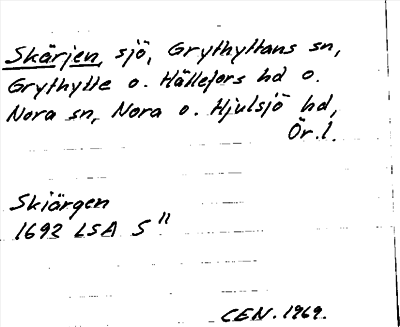 Skärjen, sjö, Grythyttans sn,
Grythytte o. Hällefors hd o.
Nora sn, Nora o. Hjulsjö hd,
Ör. l.
Skiärgen
1692 LSA S"
CEN. 1969.